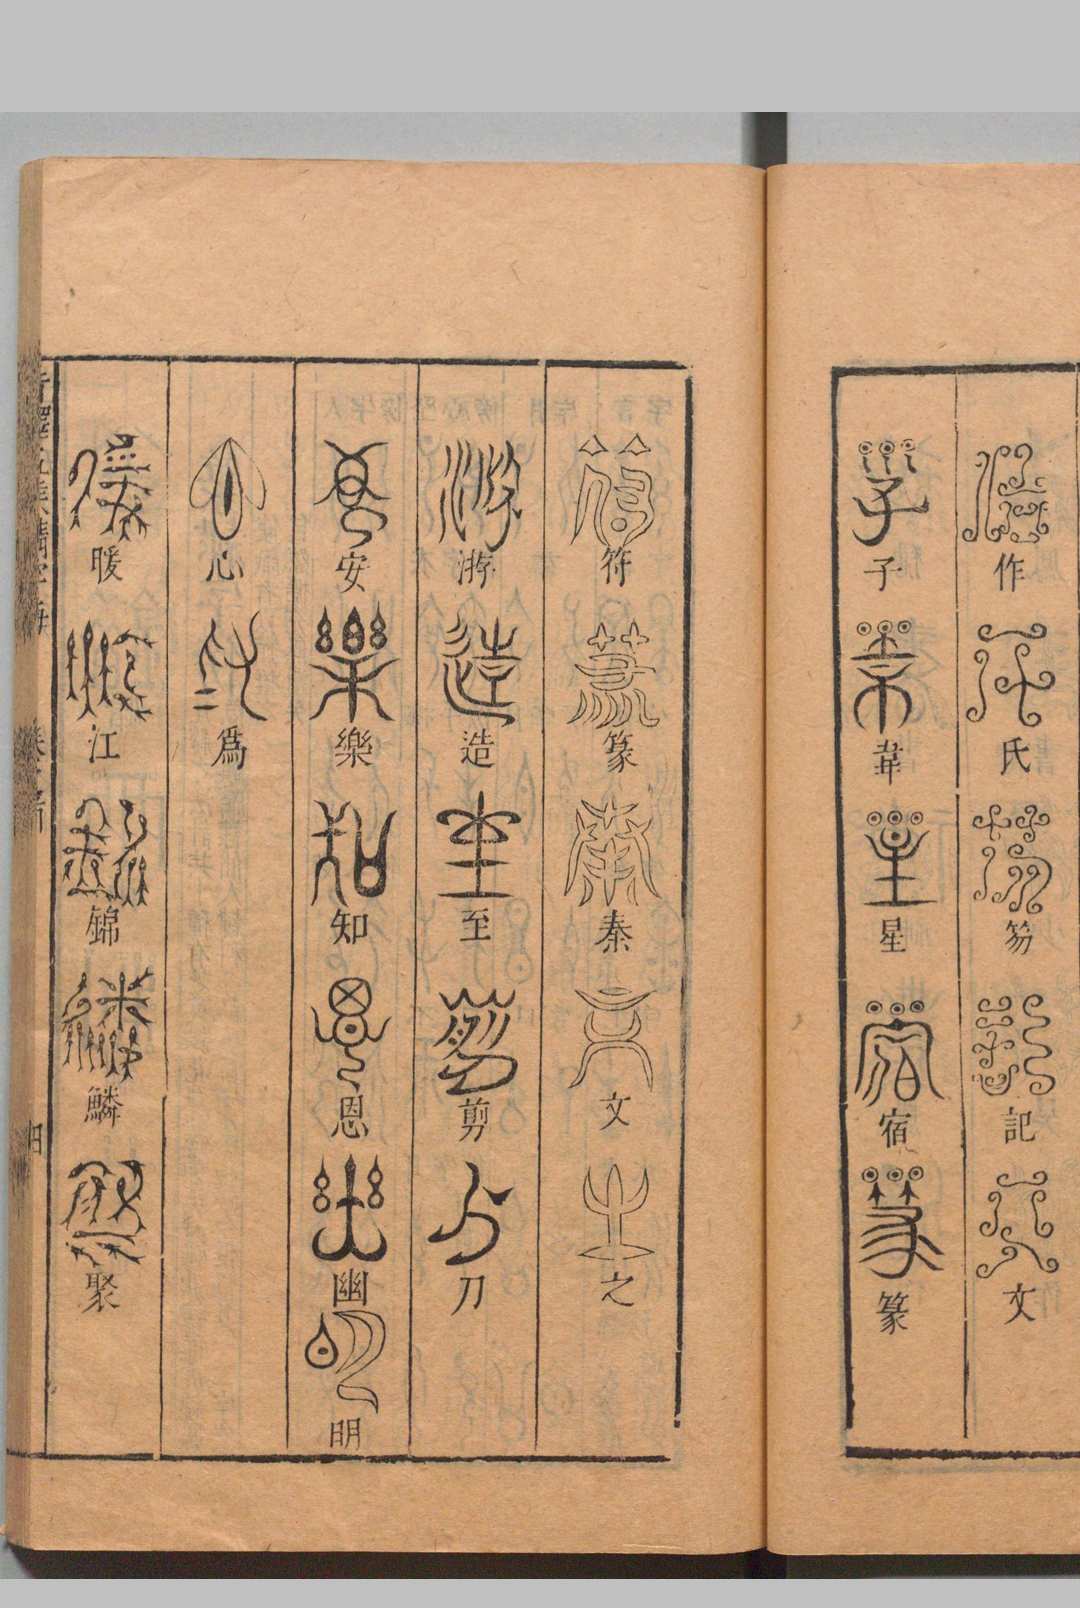 作氏笏記文
子韋星宿篆
符篆秦文之
游造至剪刀
安樂知恩幽明
心為
暖江錦鱗聚